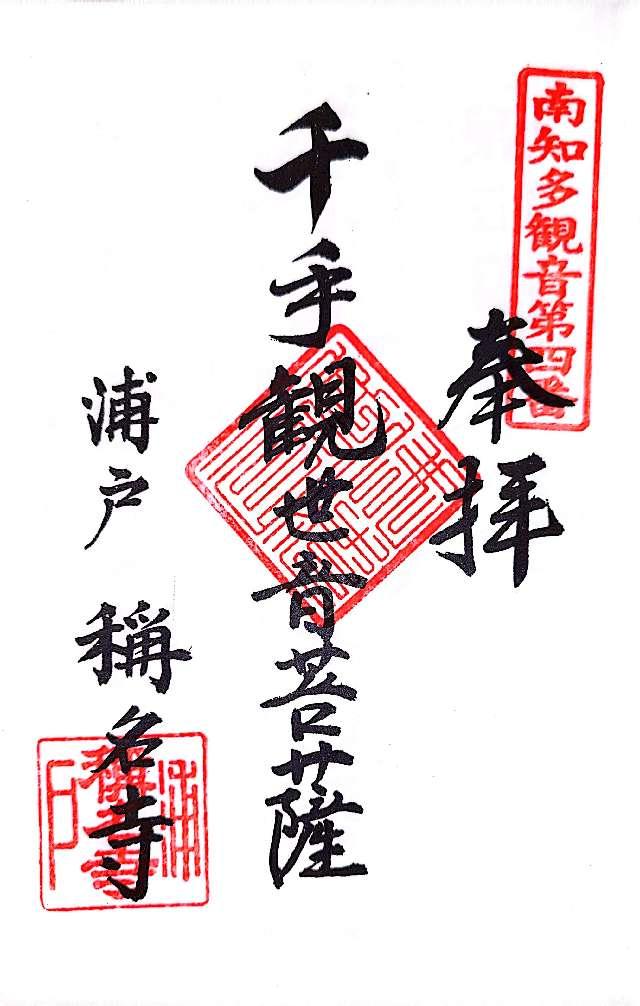 南知多観音第四番
奉拝
千手観世音菩薩
浦戸 稱名寺
浦戸稱名寺